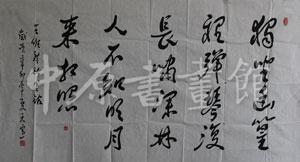 獨坐幽篁
裡彈琴復
長嘯深林
人不知明月
來相照
中原書畫館